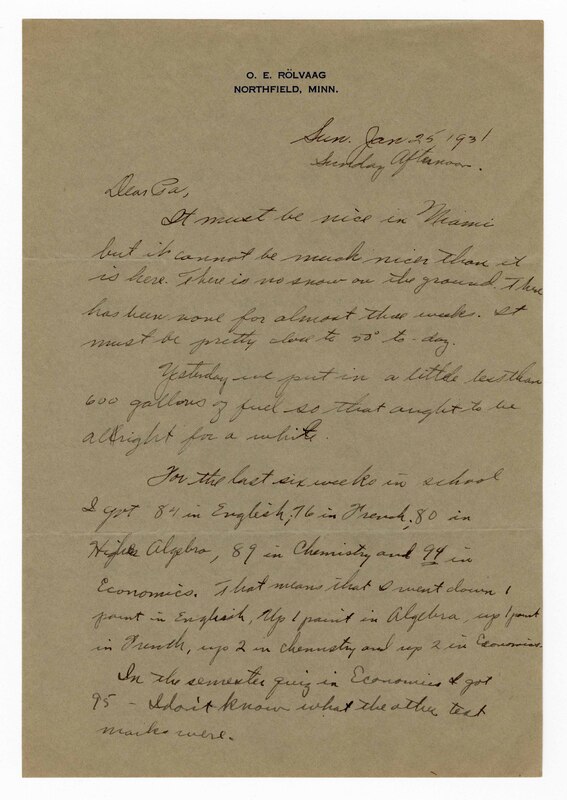 O. E. RÖLVAAG
NORTHFIELD, MINN.
Sun. Jan. 25 1931
Sunday Afternoon.
Dear Pa,
It must be nice in Miami
but it cannot be much nicer than it
is here. There is no snow on the ground. There
has been none for almost three weeks. It
must be pretty close to 50° to-day.
Yesterday we put in a little less than
600 gallons of fuel so that ought to be
allright for a while.
For the last six weeks in school
I got 84 in English, 76 in French, 80 in
Higher Algebra, 89 in Chemistry and 94 in
Economics. That means that I went down 1
point in English, Up 1 point in Algebra, up 1 point
in French, up 2 in chemistry and up 2 in Economics.
In the semester quiz in Economics I got
95 - I don't know what the other test
marks were.